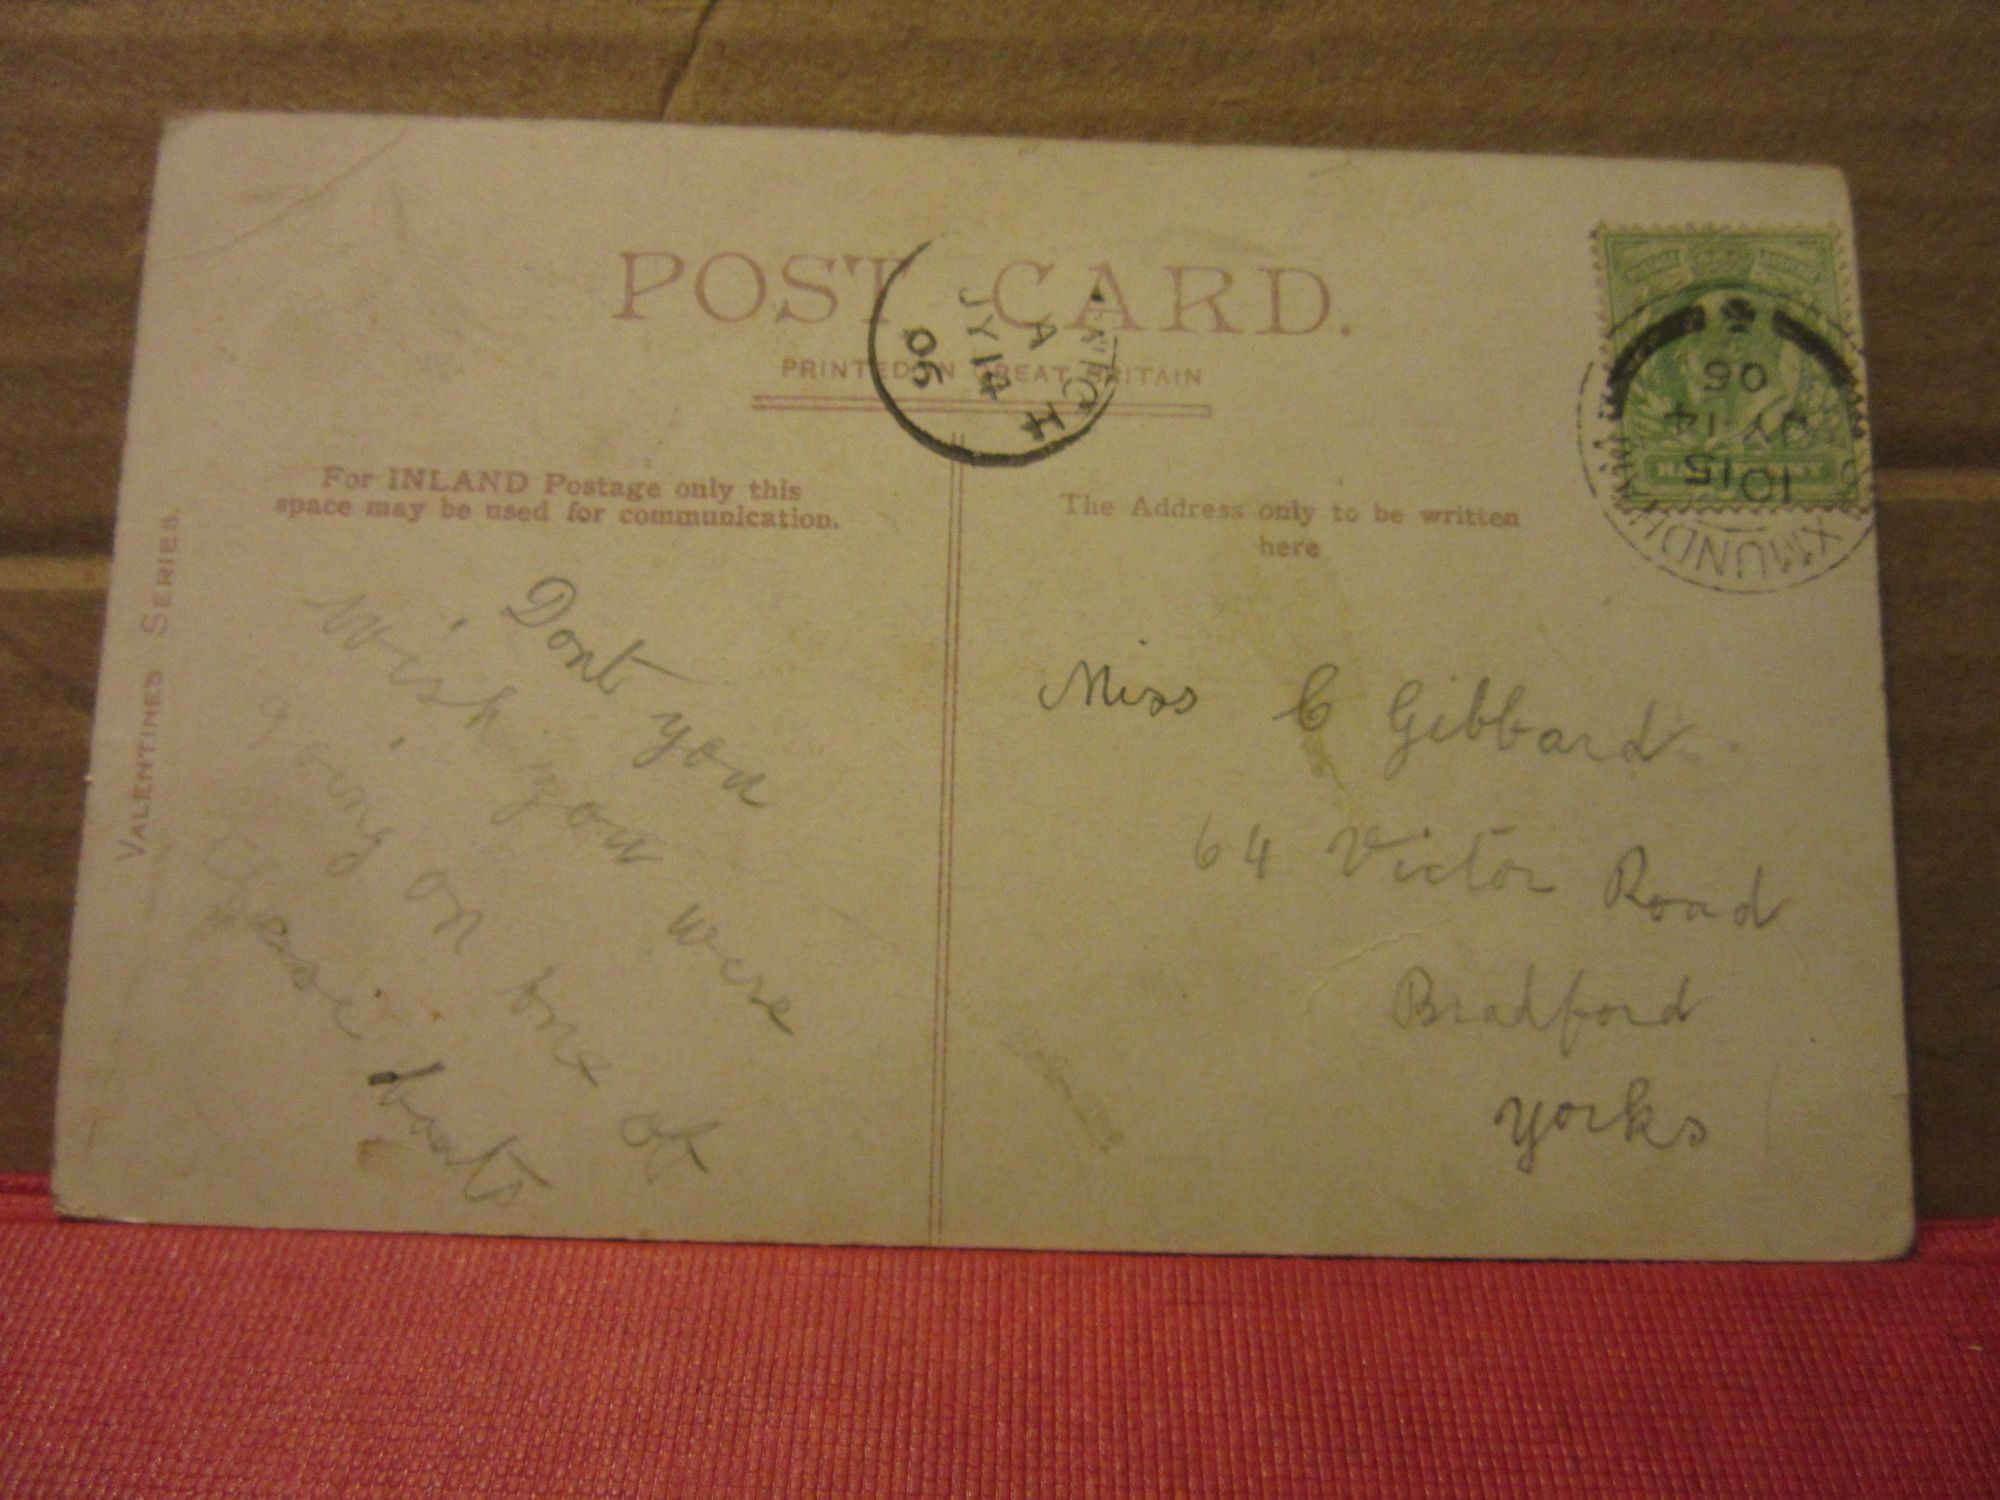 POST CARD.
PRINTED IN GREAT BRITAIN
For INLAND Postage only this
space may be used for communication.
The Address only to be written
here
VALENTINES SERIES.
Dont you
Wish you were
going on one of
these boats
Miss C Gibbard
64 Victor Road
Bradford
Yorks
A
JY 14
06
HALFPENNY
10 15
JY 14
06